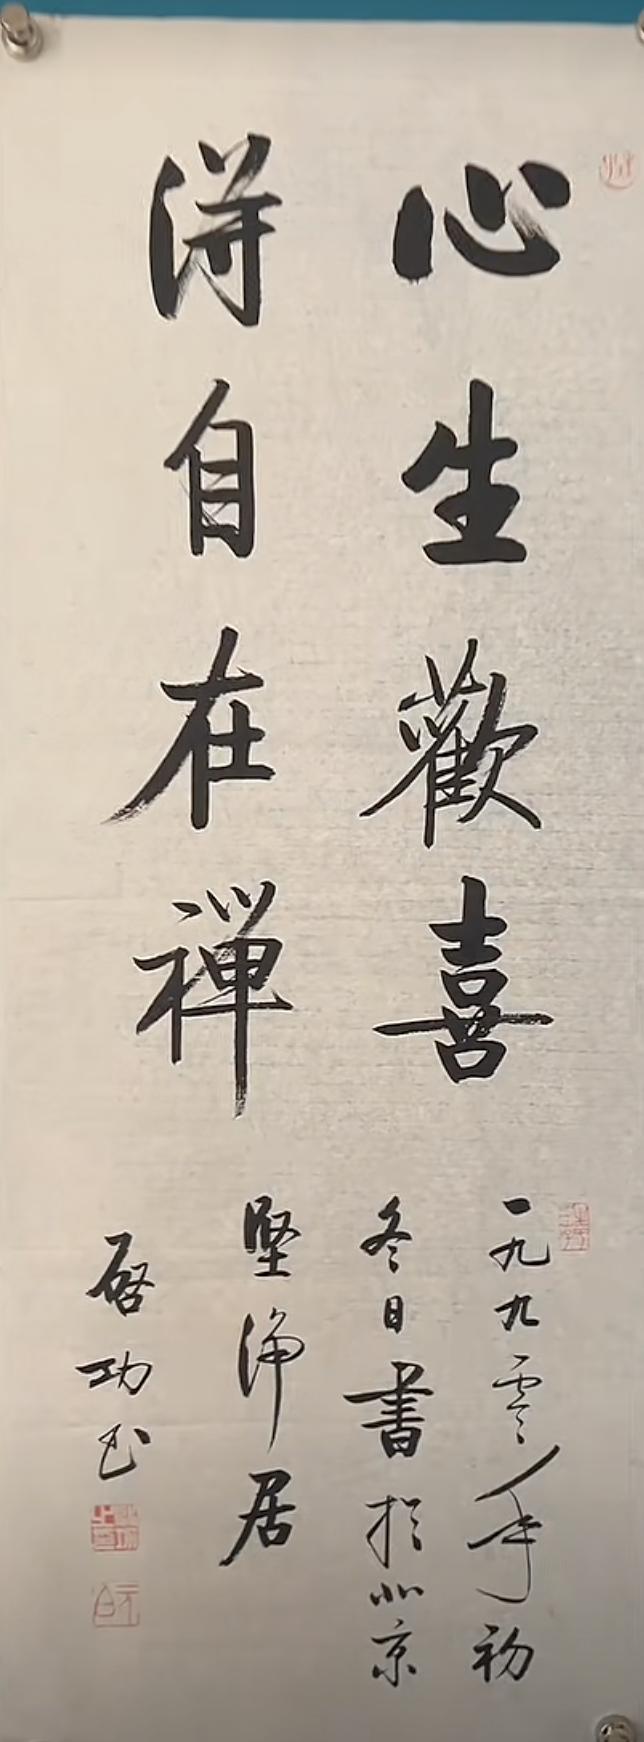 心生歡喜
自在禪
一九九零年初
冬日書於北京
堅淨居
啓功书